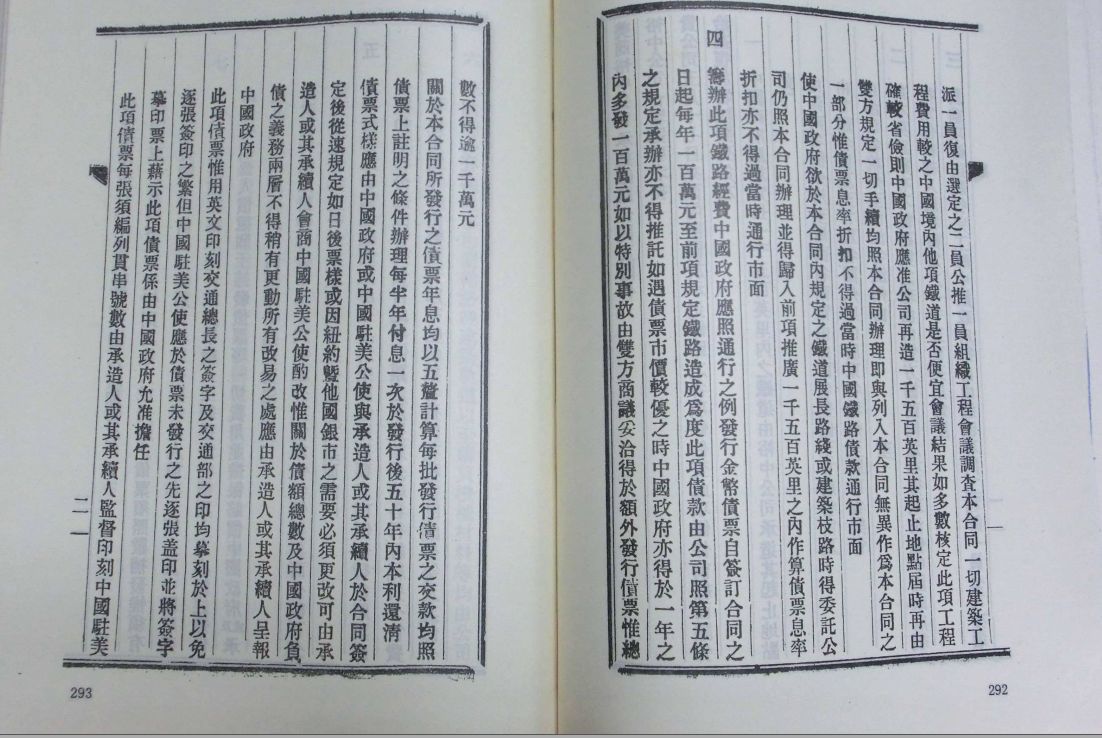 派一員復由選定之二員公推一員組織工程會議調查本合同一切建築工
程費用較之中國境內他項鐵道是否便宜會議結果如多數核定此項工程
確較省儉則中國政府應准公司再造一千五百英里其起止地點屆時再由
雙方規定一切手續均照本合同辦理即與列入本合同無異作爲本合同之
一部分惟債票息率折扣不得過當時中國鐵路債款通行市面
使中國政府欲於本合同內規定之鐵道展長路綫或建築枝路時得委託公
司仍照本合同辦理並得歸入前項推廣一千五百英里之內作算債票息率
折扣亦不得過當時通行市面
四 籌辦此項鐵路經費中國政府應照通行之例發行金幣債票自簽訂合同之
日起每年一百萬元至前項規定鐵路造成爲度此項債款由公司照第五條
之規定承辦亦不得推託如遇債票市價較優之時中國政府亦得於一年之
內多發一百萬元如以特別事故由雙方商議妥洽得於額外發行債票惟總
292
數不得逾一千萬元
關於本合同所發行之債票年息均以五釐計算每批發行債票之交款均照
債票上註明之條件辦理每半年付息一次於發行後五十年內本利還清
債票式樣應由中國政府或中國駐美公使與承造人或其承續人於合同簽
定後從速規定如日後票樣或因紐約暨他國銀市之需要必須更改可由承
造人或其承續人會商中國駐美公使酌改惟關於債額總數及中國政府負
債之義務兩層不得稍有更動所有改易之處應由承造人或其承續人呈報
中國政府
此項債票惟用英文印刻交通總長之簽字及交通部之印均摹刻於上以免
逐張簽印之繁但中國駐美公使應於債票未發行之先逐張盖印並將簽字
摹印票上藉示此項債票係由中國政府允准擔任
此項債票每張須編列貫串號數由承造人或其承續人監督印刻中國駐美
二一
293